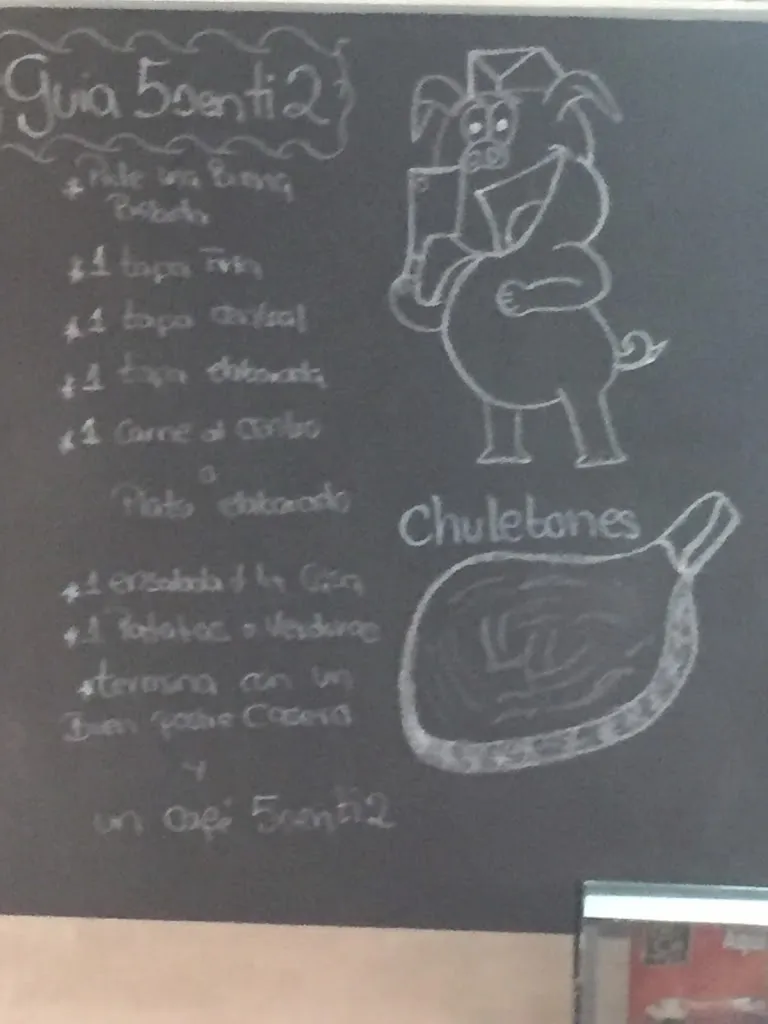 Guia 5senti2
* Pide una Buena
Bebida
* 1 tapa Fria
* 1 tapa
* 1 tapa elaborada
* 1 Carne al centro
o
Plato elaborado
* 1 ensalada d la Casa
* 1 Patatas o Verduras
* termina con un
Buen postre Casero
y
un café 5senti2
Chuletones